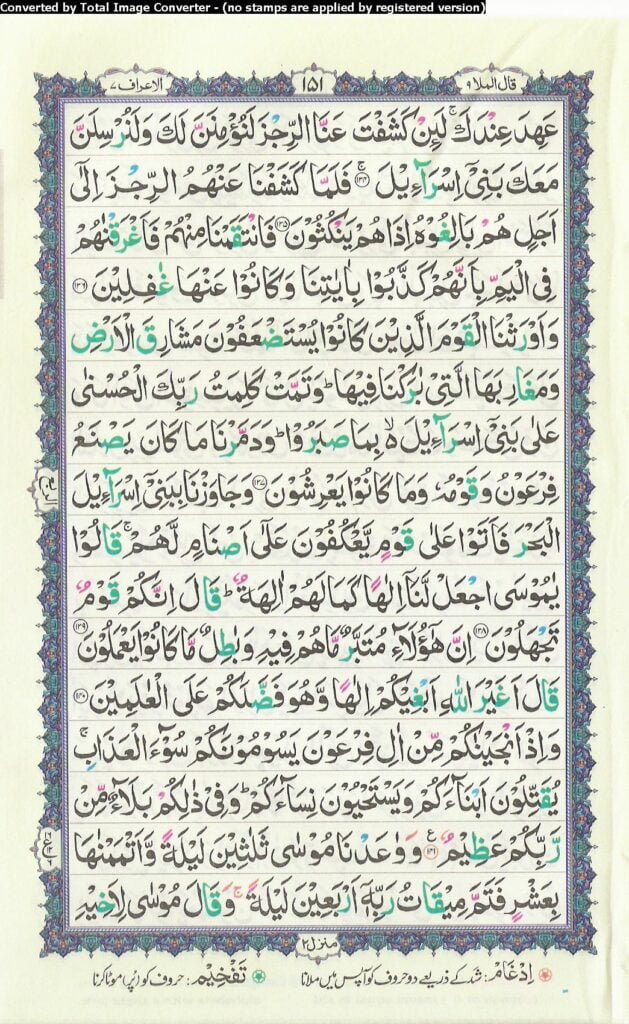 Converted by Total Image Converter - (no stamps are applied by registered version)
قال الملا ۹
۱۵۱
الاعراف ۷
عَهِدَ عِنْدَكَ ۚ لَئِنْ كَشَفْتَ عَنَّا الرِّجْزَ لَنُؤْمِنَنَّ لَكَ وَلَنُرْسِلَنَّ
مَعَكَ بَنِیْۤ اِسْرَآءِیْلَ ۚ﴿۱۳۴﴾ فَلَمَّا كَشَفْنَا عَنْهُمُ الرِّجْزَ اِلٰۤی
اَجَلٍ هُمْ بَالِغُوْهُ اِذَا هُمْ یَنْكُثُوْنَ ﴿۱۳۵﴾ فَانْتَقَمْنَا مِنْهُمْ فَاَغْرَقْنٰهُمْ
فِی الْیَمِّ بِاَنَّهُمْ كَذَّبُوْا بِاٰیٰتِنَا وَكَانُوْا عَنْهَا غٰفِلِیْنَ ﴿۱۳۶﴾
وَاَوْرَثْنَا الْقَوْمَ الَّذِیْنَ كَانُوْا یُسْتَضْعَفُوْنَ مَشَارِقَ الْاَرْضِ
وَمَغَارِبَهَا الَّتِیْ بٰرَكْنَا فِیْهَا ؕ وَتَمَّتْ كَلِمَتُ رَبِّكَ الْحُسْنٰی
عَلٰی بَنِیْۤ اِسْرَآءِیْلَ ۙ۬ بِمَا صَبَرُوْا ؕ وَدَمَّرْنَا مَا كَانَ یَصْنَعُ
فِرْعَوْنُ وَقَوْمُهٗ وَمَا كَانُوْا یَعْرِشُوْنَ ﴿۱۳۷﴾ وَجَاوَزْنَا بِبَنِیْۤ اِسْرَآءِیْلَ
الْبَحْرَ فَاَتَوْا عَلٰی قَوْمٍ یَّعْكُفُوْنَ عَلٰۤی اَصْنَامٍ لَّهُمْ ۚ قَالُوْا
یٰمُوْسَی اجْعَلْ لَّنَاۤ اِلٰهًا كَمَا لَهُمْ اٰلِهَةٌ ؕ قَالَ اِنَّكُمْ قَوْمٌ
تَجْهَلُوْنَ ﴿۱۳۸﴾ اِنَّ هٰۤؤُلَآءِ مُتَبَّرٌ مَّا هُمْ فِیْهِ وَبٰطِلٌ مَّا كَانُوْا یَعْمَلُوْنَ ﴿۱۳۹﴾
قَالَ اَغَیْرَ اللّٰهِ اَبْغِیْكُمْ اِلٰهًا وَّهُوَ فَضَّلَكُمْ عَلَی الْعٰلَمِیْنَ ﴿۱۴۰﴾
وَاِذْ اَنْجَیْنٰكُمْ مِّنْ اٰلِ فِرْعَوْنَ یَسُوْمُوْنَكُمْ سُوْٓءَ الْعَذَابِ ۚ
یُقَتِّلُوْنَ اَبْنَآءَكُمْ وَیَسْتَحْیُوْنَ نِسَآءَكُمْ ؕ وَفِیْ ذٰلِكُمْ بَلَآءٌ مِّنْ
رَّبِّكُمْ عَظِیْمٌ ﴿۱۴۱﴾ع وَوٰعَدْنَا مُوْسٰی ثَلٰثِیْنَ لَیْلَةً وَّاَتْمَمْنٰهَا
بِعَشْرٍ فَتَمَّ مِیْقَاتُ رَبِّهٖۤ اَرْبَعِیْنَ لَیْلَةً ۚ وَقَالَ مُوْسٰی لِاَخِیْهِ
منزل ۲
اِدْغَام: شد کے ذریعے دو حروف کو آپس میں ملانا
تَفْخِیْم: حروف کو (پُر) موٹا کرنا